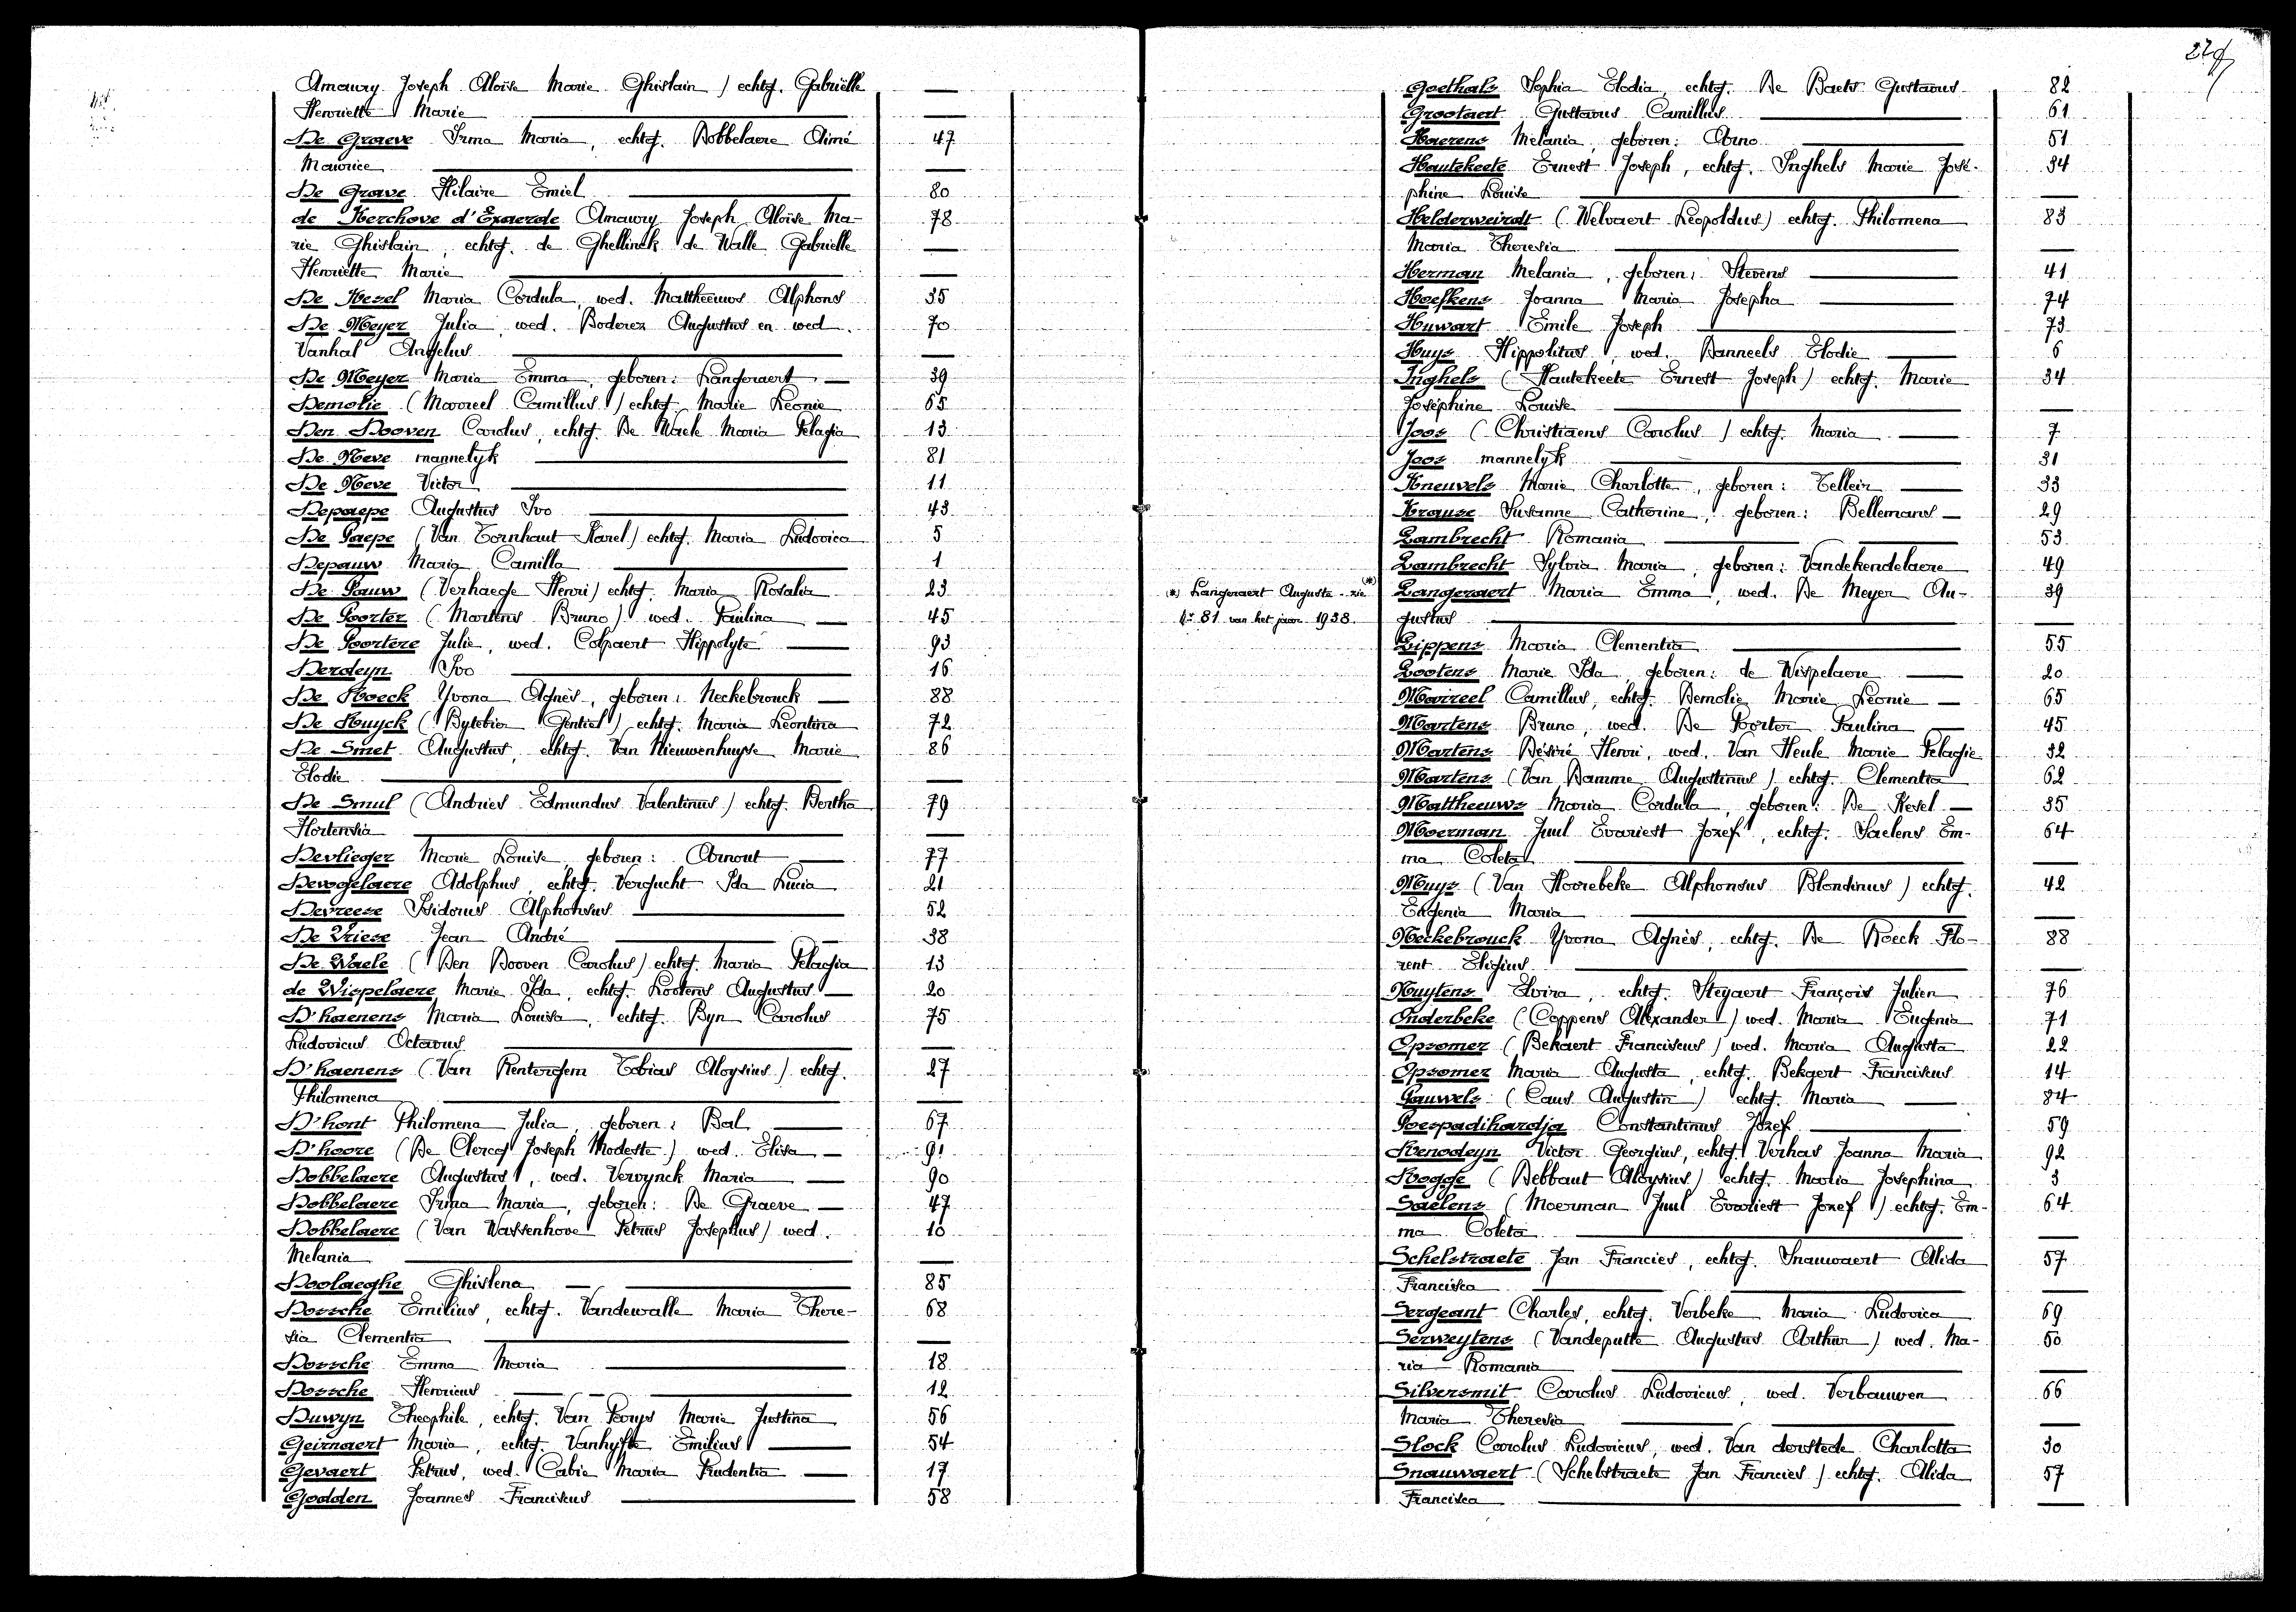 Amaury Joseph Aloïse Marie Ghislain) echtg. Gabriëlle —
Henriette Marie —
De Graeve Irma Maria, echtg. Dobbelaere Aimé 47
Maurice —
De Grave Hilaire Emiel 80
de Kerchove d'Exaerde Amaury Joseph Aloïse Ma- 78
rie Ghislain, echtg. de Ghellinck de Walle Gabriëlle —
Henriette Marie —
De Kesel Maria Cordula, wed. Mattheeuws Alphons 35
De Meyer Julia, wed. Boderez Augustus en wed. 70
Vanhal Angelus —
De Meyer Maria Emma, geboren: Langeraert 39
Demolie (Marreel Camillus) echtg. Marie Leonie 65
Den Dooven Carolus, echtg. De Waele Maria Pelagia 13
De Neve mannelyk 81
De Neve Victor 11
Depaepe Augustus Ivo 43
De Paepe (Van Eenhaut Karel) echtg. Maria Ludovica 5
Depauw Maria Camilla 1
De Pauw (Verhaege Henri) echtg. Maria Rosalia 23
De Poorter (Martens Bruno) wed. Paulina 45
De Poortere Julie, wed. Colpaert Hippolyte 93
Derdeyn Ivo 16
De Roeck Yvona Agnès, geboren: Neckebrouck 88
De Ruyck (Bytebier Gentiel) echtg. Maria Leontina 72
De Smet Augustus, echtg. Van Nieuwenhuyse Marie 86
Elodie —
De Smul (Andries Edmundus Valentinus) echtg. Bertha 79
Hortensia —
Devlieger Marie Louise, geboren: Arnout 77
Devogelaere Adolphus, echtg. Versucht Ida Lucia 21
Devreese Isidorus Alphonsus 52
De Vriese Jean André 38
De Waele (Den Dooven Carolus) echtg. Maria Pelagia 13
de Wispelaere Marie Ida, echtg. Lootens Augustus 20
D'haenens Maria Louisa, echtg. Ryn Carolus 75
Ludovicus Octavus —
D'haenens (Van Renterghem Tobias Aloysius) echtg. 27
Philomena —
D'hont Philomena Julia, geboren: Bal 67
D'hoore (De Clercq Joseph Modeste) wed. Elisa 91
Dobbelaere Augustus, wed. Vervynck Maria 90
Dobbelaere Irma Maria, geboren: De Graeve 47
Dobbelaere (Van Wassenhove Petrus Josephus) wed. 10
Melania —
Doolaeghe Ghislena 85
Dossche Emilius, echtg. Vandewalle Maria There- 68
sia Clementia —
Dossche Emma Maria 18
Dossche Henricus 12
Duwyn Theophile, echtg. Van Parys Marie Justina 56
Geirnaert Maria, echtg. Vanhyfte Emilius 54
Gevaert Petrus, wed. Cabie Maria Prudentia 17
Godden Joannes Franciscus 58
Goethals Sophia Elodia, echtg. De Baets Gustavus 82
Grootaert Gustavus Camillus 61
Haerens Melania, geboren: Arno 51
Hautekeete Ernest Joseph, echtg. Inghels Marie José- 34
phine Louise —
Helderweirdt (Welvaert Leopoldus) echtg. Philomena 83
Maria Theresia —
Herman Melania, geboren: Stevens 41
Hoefkens Joanna Maria Josepha 74
Huwart Emile Joseph 73
Huys Hippolitus, wed. Danneels Elodie 6
Inghels (Hautekeete Ernest Joseph) echtg. Marie 34
Joséphine Louise —
Joos (Christiaens Carolus) echtg. Maria 7
Joos mannelyk 31
Kneuvels Marie Charlotte, geboren: Tellein 33
Krause Susanne Catherine, geboren: Bellemans 29
Lambrecht Romania 53
Lambrecht Sylvia Maria, geboren: Vandekendelaere 49
Langeraert Maria Emma, wed. De Meyer Au- 39
(*)
(*) Langeraert Augusta - zie
gustus —
Nr 81 van het jaar 1938.
Lippens Maria Clementia 55
Lootens Marie Ida, geboren: de Wispelaere 20
Marreel Camillus, echtg. Demolie Marie Leonie 65
Martens Bruno, wed. De Poorter Paulina 45
Martens Désiré Henri, wed. Van Heule Marie Pelagie 32
Martens (Van Damme Augustinus) echtg. Clementia 62
Mattheeuws Maria Cordula, geboren: De Kesel 35
Moerman Juul Evariest Jozef, echtg. Saelens Em- 64
ma Coleta —
Muys (Van Hoorebeke Alphonsus Blondinus) echtg. 42
Eugenia Maria —
Neckebrouck Yvona Agnès, echtg. De Roeck Flo- 88
rent Eligius —
Nuytens Elvira, echtg. Steyaert François Julien 76
Onderbeke (Coppens Alexander) wed. Maria Eugenia 71
Opsomer (Bekaert Franciscus) wed. Maria Augusta 22
Opsomer Maria Augusta, echtg. Bekaert Franciscus 14
Pauwels (Caus Augustin) echtg. Maria 84
Poespadihardja Constantinus Jozef 59
Renodeyn Victor Georgius, echtg. Verhas Joanna Maria 92
Rogge (Debbaut Aloysius) echtg. Maria Josephina 3
Saelens (Moerman Juul Evariest Jozef) echtg. Em- 64
ma Coleta —
Schelstraete Jan Francies, echtg. Snauwaert Alida 57
Francisca —
Sergeant Charles, echtg. Verbeke Maria Ludovica 69
Serweytens (Vandeputte Augustus Arthur) wed. Ma- 50
ria Romania —
Silversmit Carolus Ludovicus, wed. Verbauwen 66
Maria Theresia —
Slock Carolus Ludovicus, wed. Van derstede Charlotta 30
Snauwaert (Schelstraete Jan Francies) echtg. Alida 57
Francisca —